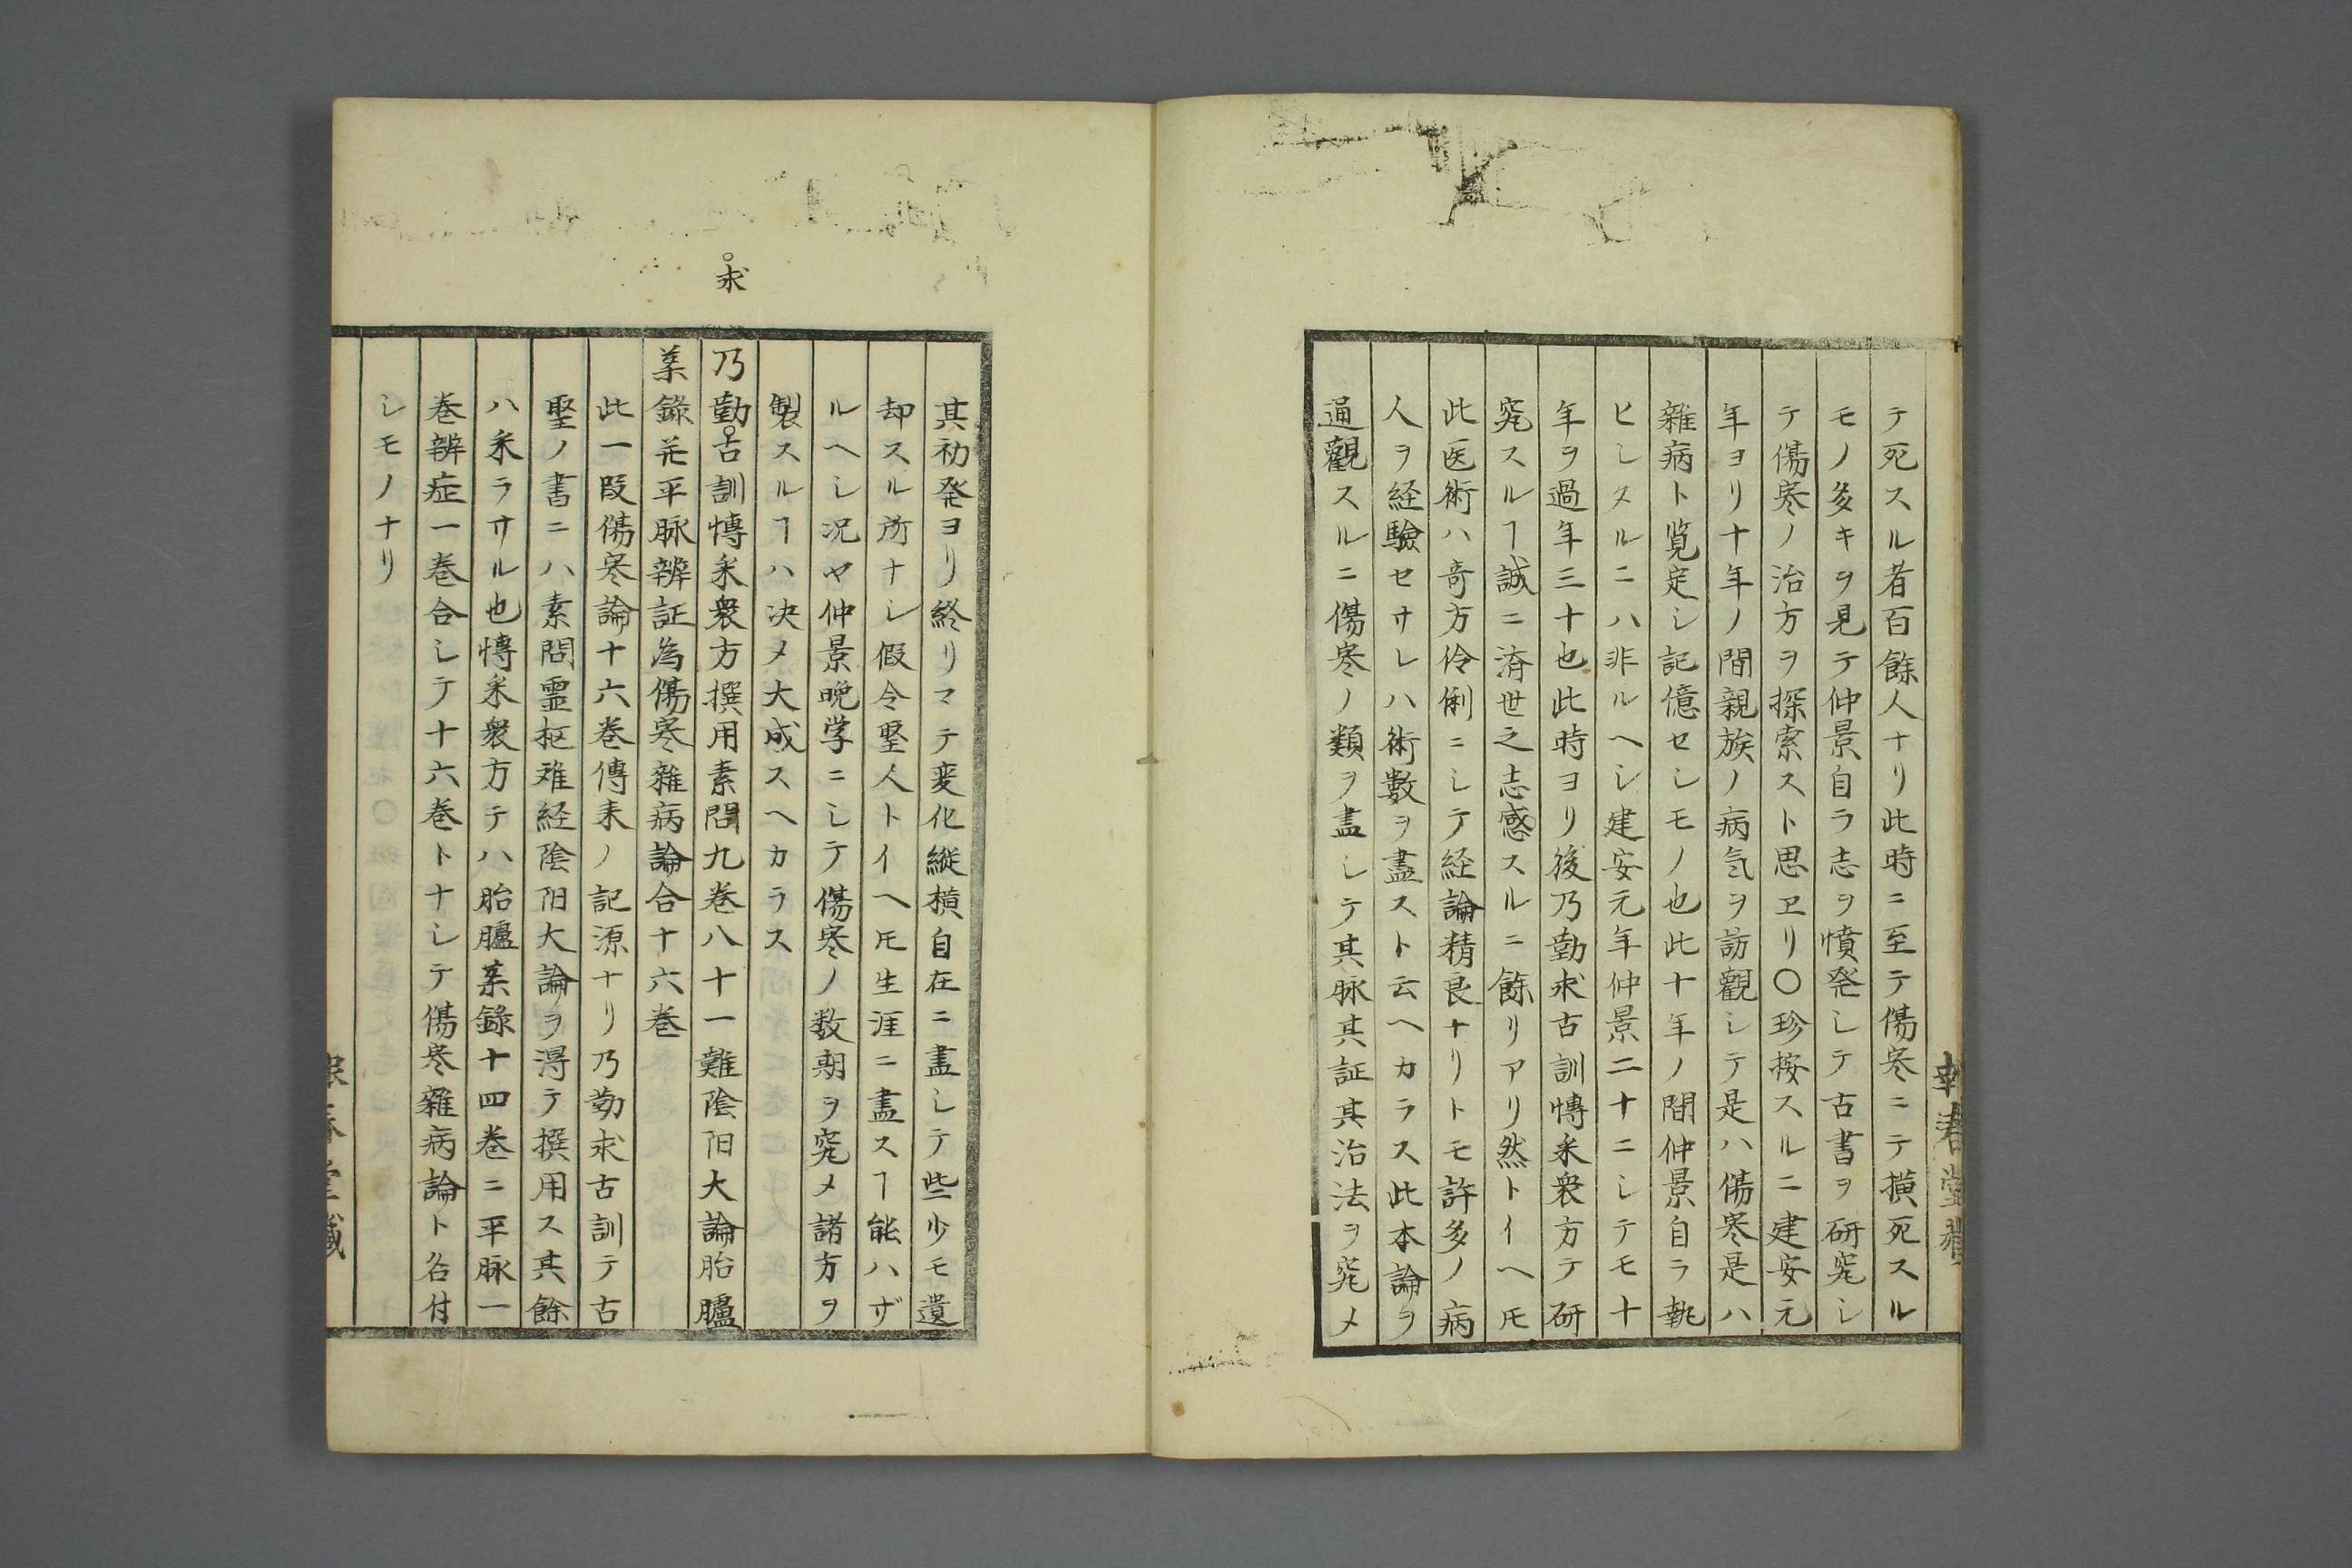 テ死スル者百餘人ナリ此時ニ至テ傷寒ニテ横死スル
モノ多キヲ見テ仲景自ラ志ヲ憤発シテ古書ヲ研究シ
テ傷寒ノ治方ヲ探索スト思ヱリ〇珍按スルニ建安元
年ヨリ十年ノ間親族ノ病気ヲ訪觀シテ是ハ傷寒是ハ
雜病ト覧定シ記億セシモノ也此十年ノ間仲景自ラ執
ヒシタルニハ非ルヘシ建安元年仲景二十ニシテモ十
年ヲ過年三十也此時ヨリ後乃勤求古訓愽釆衆方テ研
究スルヿ誠ニ済世之志感スルニ餘リアリ然トイヘ𪜈
此医術ハ竒方伶俐ニシテ経論精良ナリトモ許多ノ病
人ヲ経驗セサレハ術數ヲ盡スト云ヘカラス此本論ヲ
通觀スルニ傷寒ノ類ヲ盡シテ其脉其証其治法ヲ究メ
其初発ヨリ終リマテ変化縦横自在ニ盡シテ些少モ遺
却スル所ナシ假令聖人トイヘ𪜈生涯ニ盡スヿ能ハザ
ルヘシ况ヤ仲景晩学ニシテ傷寒ノ数期ヲ究メ諸方ヲ
製スルヿハ决メ大成スヘカラス
求
乃勤古訓愽釆衆方撰用素問九巻八十一難陰阳大論胎臚
藥錄并平脉辨証為傷寒雜病論合十六巻
此一段傷寒論十六巻傳来ノ記源ナリ乃勤求古訓テ古
聖ノ書ニハ素問霊枢难経陰阳大論ヲ得テ撰用ス其餘
ハ釆ラサル也愽釆衆方テハ胎臚藥録十四巻ニ平脉一
巻辨症一巻合シテ十六巻トナシテ傷寒雜病論ト名付
シモノナリ